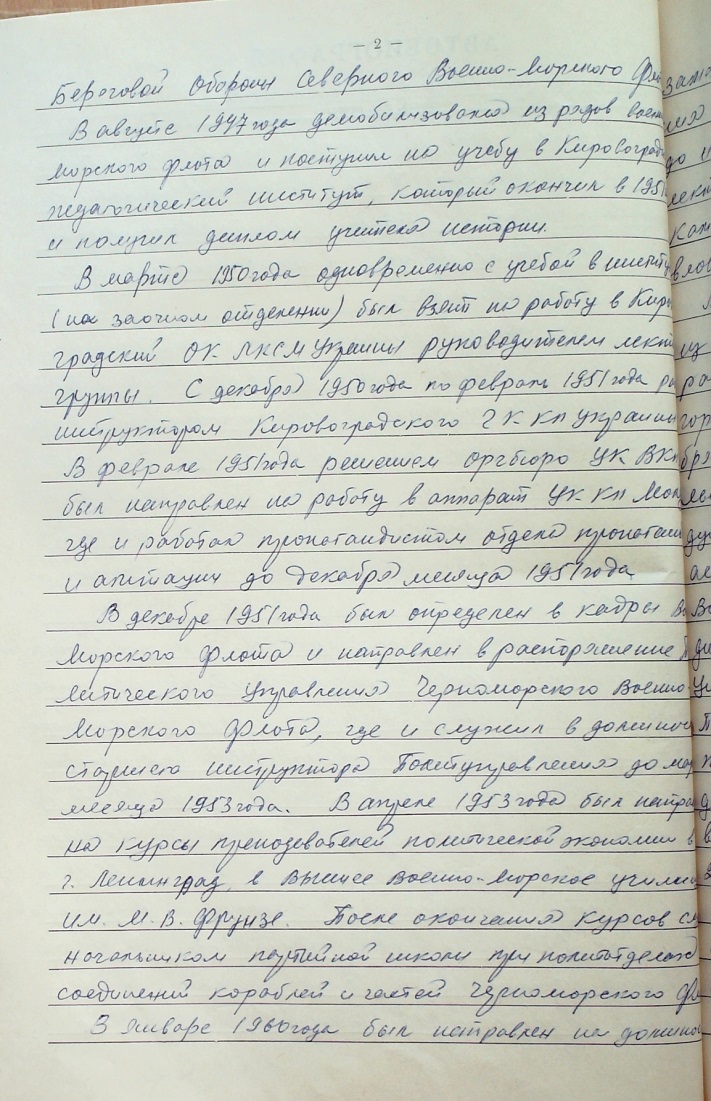 - 2 -
Береговой Обороны Северного Военно-Морского Фл
В августе 1947 года демобилизован из рядов воен
морского флота и поступил на учебу в Кировоград
педагогический институт, который окончил в 195
и получил диплом учителя истории.
В марте 1950 года одновременно с учебой в институ
(на заочном отделении) был взят на работу в Киро
градский ОК ЛКСМ Украины руководителем лект
группы. С декабря 1950 года по февраль 1951 года ра
инструктором Кировоградского ГК КП Украины
В феврале 1951 года решением оргбюро ЦК ВКП
был направлен на работу в аппарат ЦК КП Мол
где и работал пропагандистом отдела пропаган
и агитации до декабря месяца 1951 года
В декабре 1951 года был определен в кадры В
Морского флота и направлен в распоряжение П
литического Управления Черноморского Военно-
Морского Флота, где и служил в должнос
старшего инструктора Политуправления до мар
месяца 1953 года. В апреле 1953 года был напра
на курсы преподавателей политической экономии в
г. Ленинград, в Высшее Военно-Морское училищ
им. М. В. Фрунзе. После окончания курсов сл
начальником партийной школы при политотделах
соединений кораблей и частей Черноморского Фл
В январе 1960 года был направлен на должнос